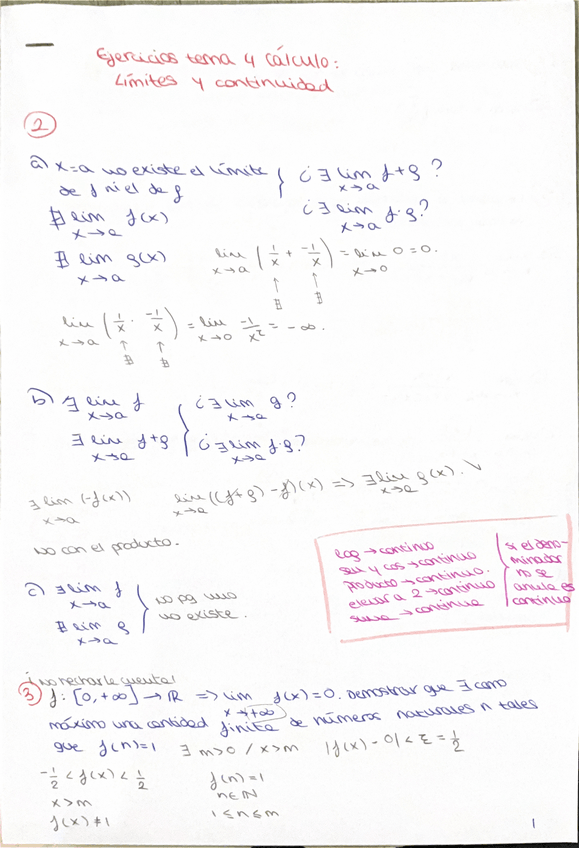 Ejercicios tema 4 cálculo:
Límites y continuidad
2
a) x=a no existe el límite de f ni el de g { ¿∃ lim x→a f+g ?
∄ lim x→a f(x) ¿∃ lim x→a f·g?
∄ lim x→a g(x) lim x→a (1/x + -1/x) = lim x→0 0 = 0.
∄ ∄
lim x→a (1/x · -1/x) = lim x→0 -1/x² = -∞.
∄ ∄
b) ∃ lim x→a f { ¿∃ lim x→a g?
∃ lim x→a f+g ¿∃ lim x→a f·g?
∃ lim x→a (-f(x)) lim x→a ((f+g) -f)(x) => ∃ lim x→a g(x). √
no con el producto.
c) ∃ lim x→a f } no pq uno
∄ lim x→a g no existe.
log → continuo
sen y cos → continuo
producto → continuo.
elevar a 2 → continuo
suma → continua
si el deno-
minador
no se
anula es
continuo
¡no rechar le cuenta!
3 f: [0,+∞] → ℝ => lim x→+∞ f(x)=0. Demostrar que ∃ como
máximo una cantidad finita de números naturales n tales
que f(n)=1 ∃ m>0 / x>m |f(x) - 0| < ε = 1/2
-1/2 < f(x) < 1/2 f(n) = 1
x>m n∈ℕ
f(x) ≠ 1 1 ≤ n ≤ m
1